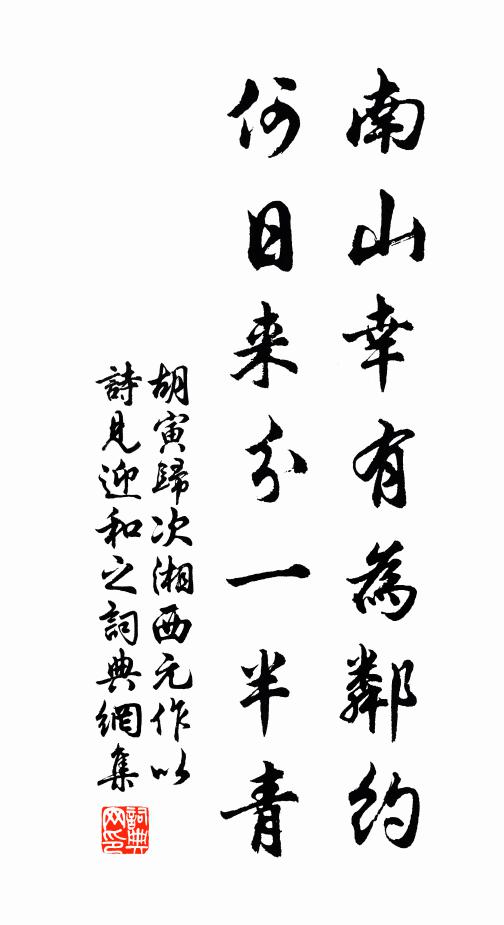 南山幸有為鄰約
何日来分一半青
胡寅歸次湘西元作以
詩見迎和之詞典網集
詞典
网印